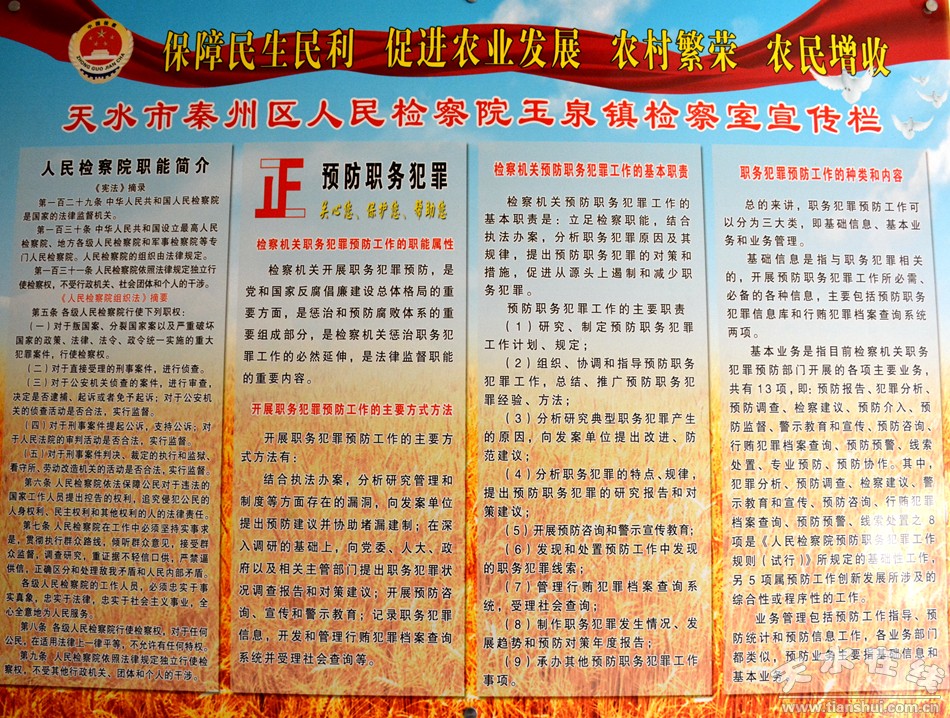 保障民生民利 促进农业发展 农村繁荣 农民增收
天水市秦州区人民检察院玉泉镇检察室宣传栏
人民检察院职能简介
《宪法》摘录
第一百二十九条 中华人民共和国人民检察院
是国家的法律监督机关。
第一百三十条 中华人民共和国设立最高人民
检察院、地方各级人民检察院和军事检察院等专
门人民检察院。人民检察院的组织由法律规定。
第一百三十一条 人民检察院依照法律规定独立行
使检察权,不受行政机关、社会团体和个人的干涉。
《人民检察院组织法》摘要
第五条 各级人民检察院行使下列职权:
(一)对于叛国案、分裂国家案以及严重破坏
国家的政策、法律、法令、政令统一实施的重大
犯罪案件,行使检察权。
(二)对于直接受理的刑事案件,进行侦查。
(三)对于公安机关侦查的案件,进行审查,
决定是否逮捕、起诉或者免予起诉;对于公安机
关的侦查活动是否合法,实行监督。
(四)对于刑事案件提起公诉,支持公诉;对
于人民法院的审判活动是否合法,实行监督。
(五)对于刑事案件判决、裁定的执行和监狱、
看守所、劳动改造机关的活动是否合法,实行监督。
第六条 人民检察院依法保障公民对于违法的
国家工作人员提出控告的权利,追究侵犯公民的
人身权利、民主权利和其他权利的人的法律责任。
第七条 人民检察院在工作中必须坚持实事求
是,贯彻执行群众路线,倾听群众意见,接受群
众监督,调查研究,重证据不轻信口供,严禁逼
供信,正确区分和处理敌我矛盾和人民内部矛盾。
各级人民检察院的工作人员,必须忠实于事
实真象,忠实于法律,忠实于社会主义事业,全
心全意地为人民服务。
第八条 各级人民检察院行使检察权,对于任何
公民,在适用法律上一律平等,不允许有任何特权。
第九条 人民检察院依照法律规定独立行使检
察权,不受其他行政机关、团体和个人的干涉。
正 预防职务犯罪
关心您、保护您、帮助您
检察机关职务犯罪预防工作的职能属性
检察机关开展职务犯罪预防,是
党和国家反腐倡廉建设总体格局的重
要方面,是惩治和预防腐败体系的重
要组成部分,是检察机关惩治职务犯
罪工作的必然延伸,是法律监督职能
的重要内容。
开展职务犯罪预防工作的主要方式方法
开展职务犯罪预防工作的主要方
式方法有:
结合执法办案,分析研究管理和
制度等方面存在的漏洞,向发案单位
提出预防建议并协助堵漏建制;在深
入调研的基础上,向党委、人大、政
府以及相关主管部门提出职务犯罪状
况调查报告和对策建议;开展预防咨
询、宣传和警示教育;记录职务犯罪
信息,开发和管理行贿犯罪档案查询
系统并受理社会查询等。
检察机关预防职务犯罪工作的基本职责
检察机关预防职务犯罪工作的
基本职责是:立足检察职能,结合
执法办案,分析职务犯罪原因及其
规律,提出预防职务犯罪的对策和
措施,促进从源头上遏制和减少职
务犯罪。
预防职务犯罪工作的主要职责
(1)研究、制定预防职务犯罪
工作计划、规定;
(2)组织、协调和指导预防职务
犯罪工作,总结、推广预防职务犯
罪经验、方法;
(3)分析研究典型职务犯罪产生
的原因,向发案单位提出改进、防
范建议;
(4)分析职务犯罪的特点、规律,
提出预防职务犯罪的研究报告和对
策建议;
(5)开展预防咨询和警示宣传教育;
(6)发现和处置预防工作中发现
的职务犯罪线索;
(7)管理行贿犯罪档案查询系
统,受理社会查询;
(8)制作职务犯罪发生情况、发
展趋势和预防对策年度报告;
(9)承办其他预防职务犯罪工作
事项。
职务犯罪预防工作的种类和内容
总的来讲,职务犯罪预防工作可
以分为三大类,即基础信息、基本业
务和业务管理。
基础信息是指与职务犯罪相关
的,开展预防职务犯罪工作所必需、
必备的各种信息,主要包括预防职务
犯罪信息库和行贿犯罪档案查询系统
两项。
基本业务是指目前检察机关职务
犯罪预防部门开展的各项主要业务,
共有13项,即:预防报告、犯罪分析、
预防调查、检察建议、预防介入、预
防监督、警示教育和宣传、预防咨询、
行贿犯罪档案查询、预防预警、线索
处置、专业预防、预防协作。其中,
犯罪分析、预防调查、检察建议、警
示教育和宣传、预防咨询、行贿犯罪
档案查询、预防预警、线索处置之8
项是《人民检察院预防职务犯罪工作
规则(试行)》所规定的基础性工作,
另5项属预防工作创新发展所涉及的
综合性或程序性的工作。
业务管理包括预防工作指导、预
防统计和预防信息工作,各业务部门
都类似,预防业务主要指基础信息和
基本业务。
天水在线
www.tianshui.com.cn